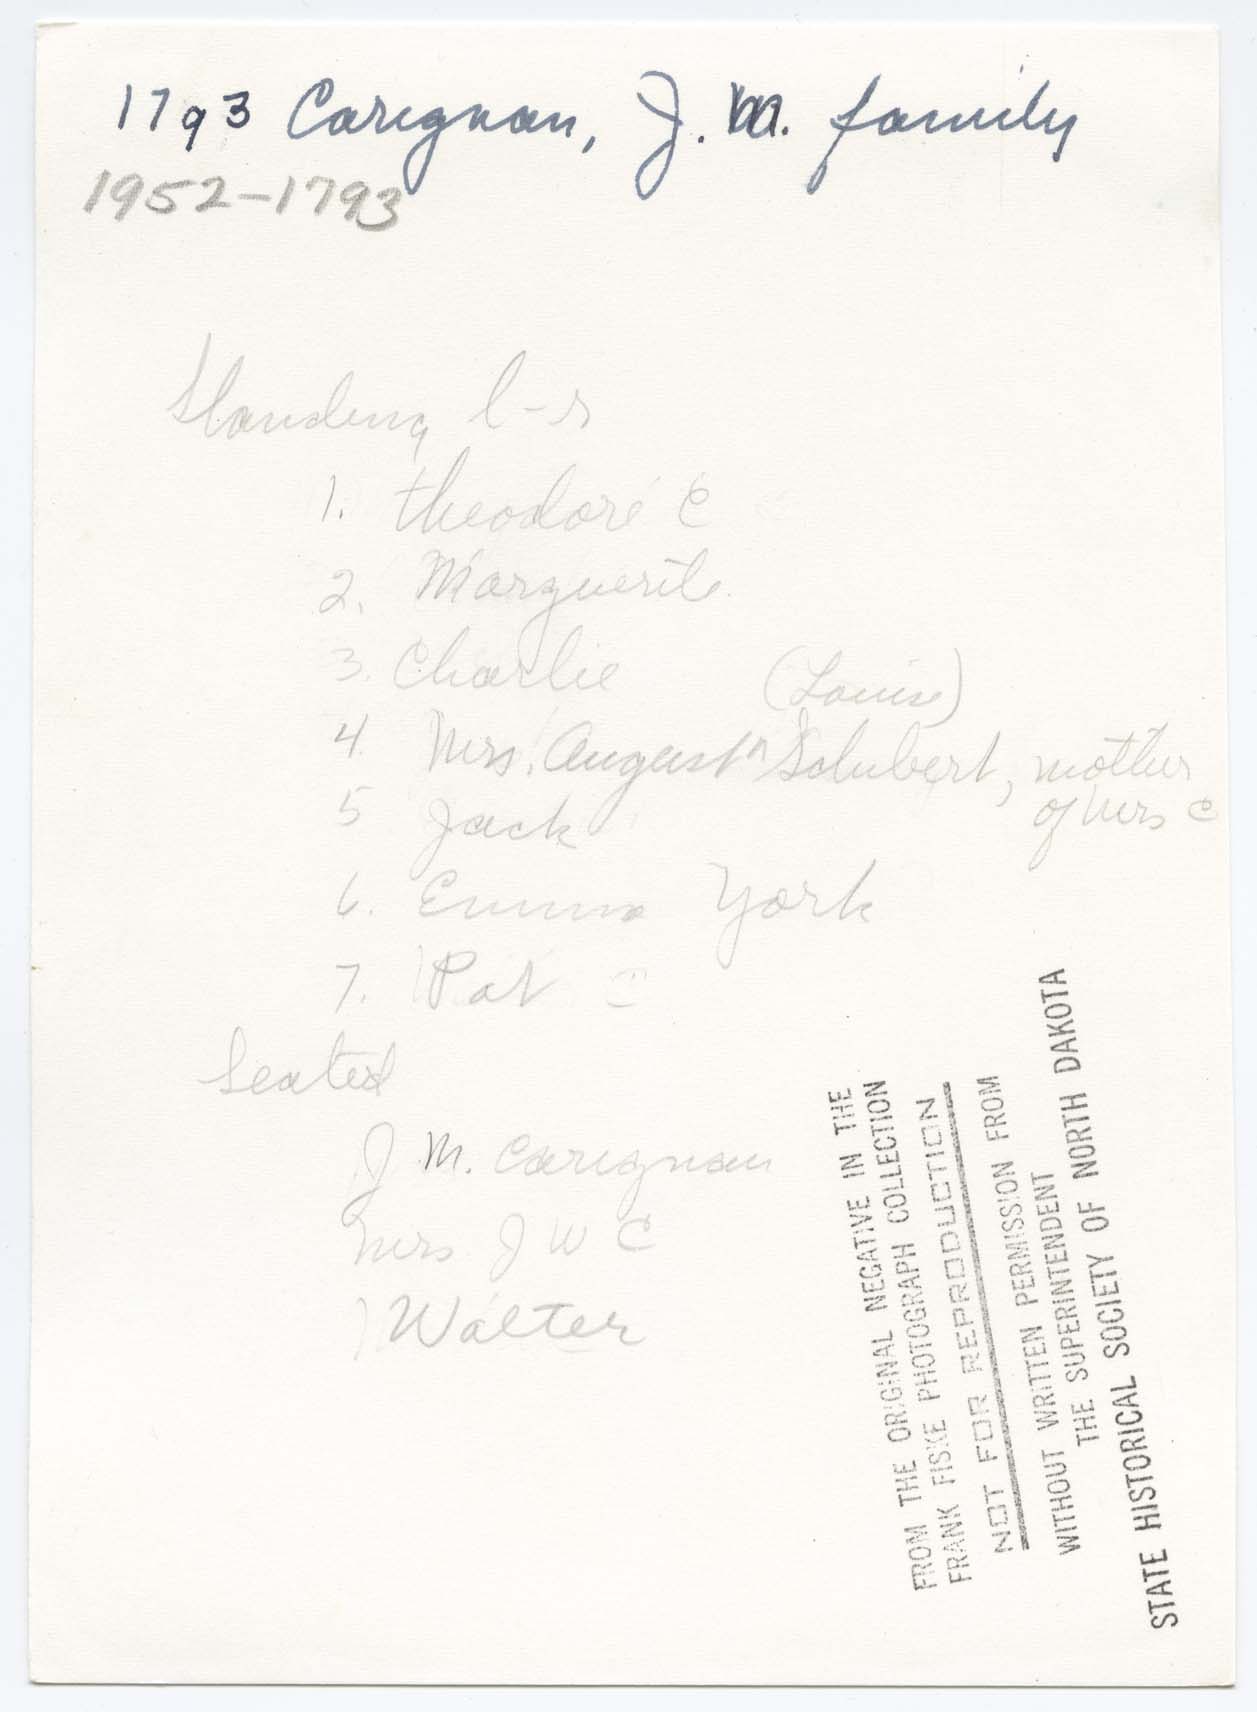 1793 Carignan, J. M. family
1952-1793
Standing l-r
1. Theodore C
2. Marguerite
3. Charlie
(Louise)
4 Mrs. August Schubert, mother
of Mrs C
5 Jack
6. Emma York
7. Pat C
Seated
J M. Carignan
Mrs J W C
Walter
FROM THE ORIGINAL NEGATIVE IN THE
FRANK FISKE PHOTOGRAPH COLLECTION
NOT FOR REPRODUCTION
WITHOUT WRITTEN PERMISSION FROM
THE SUPERINTENDENT
STATE HISTORICAL SOCIETY OF NORTH DAKOTA